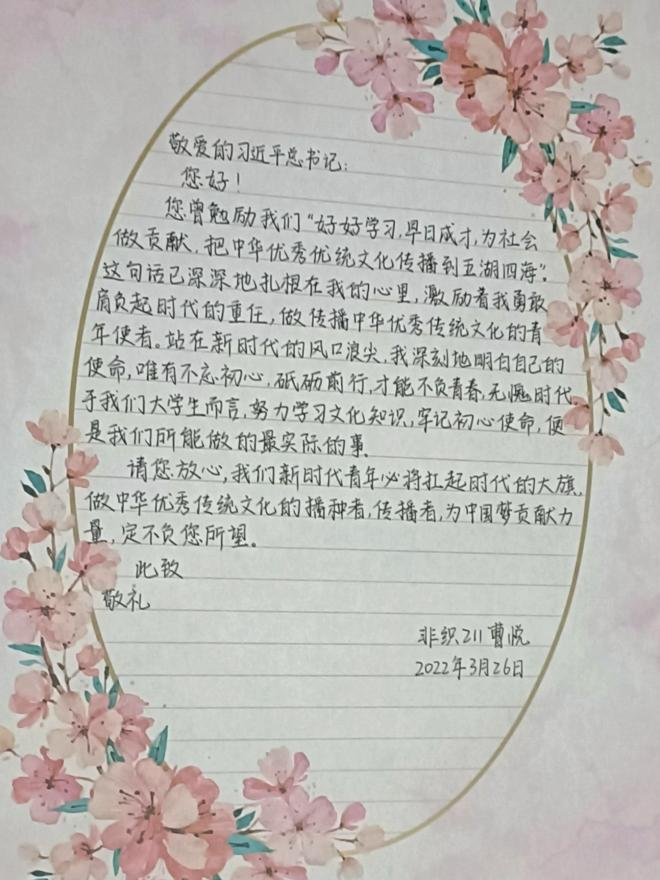 敬爱的习近平总书记：
您好！
您曾勉励我们“好好学习，早日成才，为社会
做贡献，把中华优秀优统文化传播到五湖四海”。
这句话已深深地扎根在我的心里，激励着我勇敢
肩负起时代的重任，做传播中华优秀传统文化的青
年使者。站在新时代的风口浪尖，我深刻地明白自己的
使命，唯有不忘初心，砥砺前行，才能不负青春，无愧时代
于我们大学生而言，努力学习文化知识，牢记初心使命，便
是我们所能做的最实际的事。
请您放心，我们新时代青年必将扛起时代的大旗，
做中华优秀传统文化的播种者，传播者，为中国梦贡献力
量，定不负您所望。
此致
敬礼
非织211 曹悦
2022年3月26日